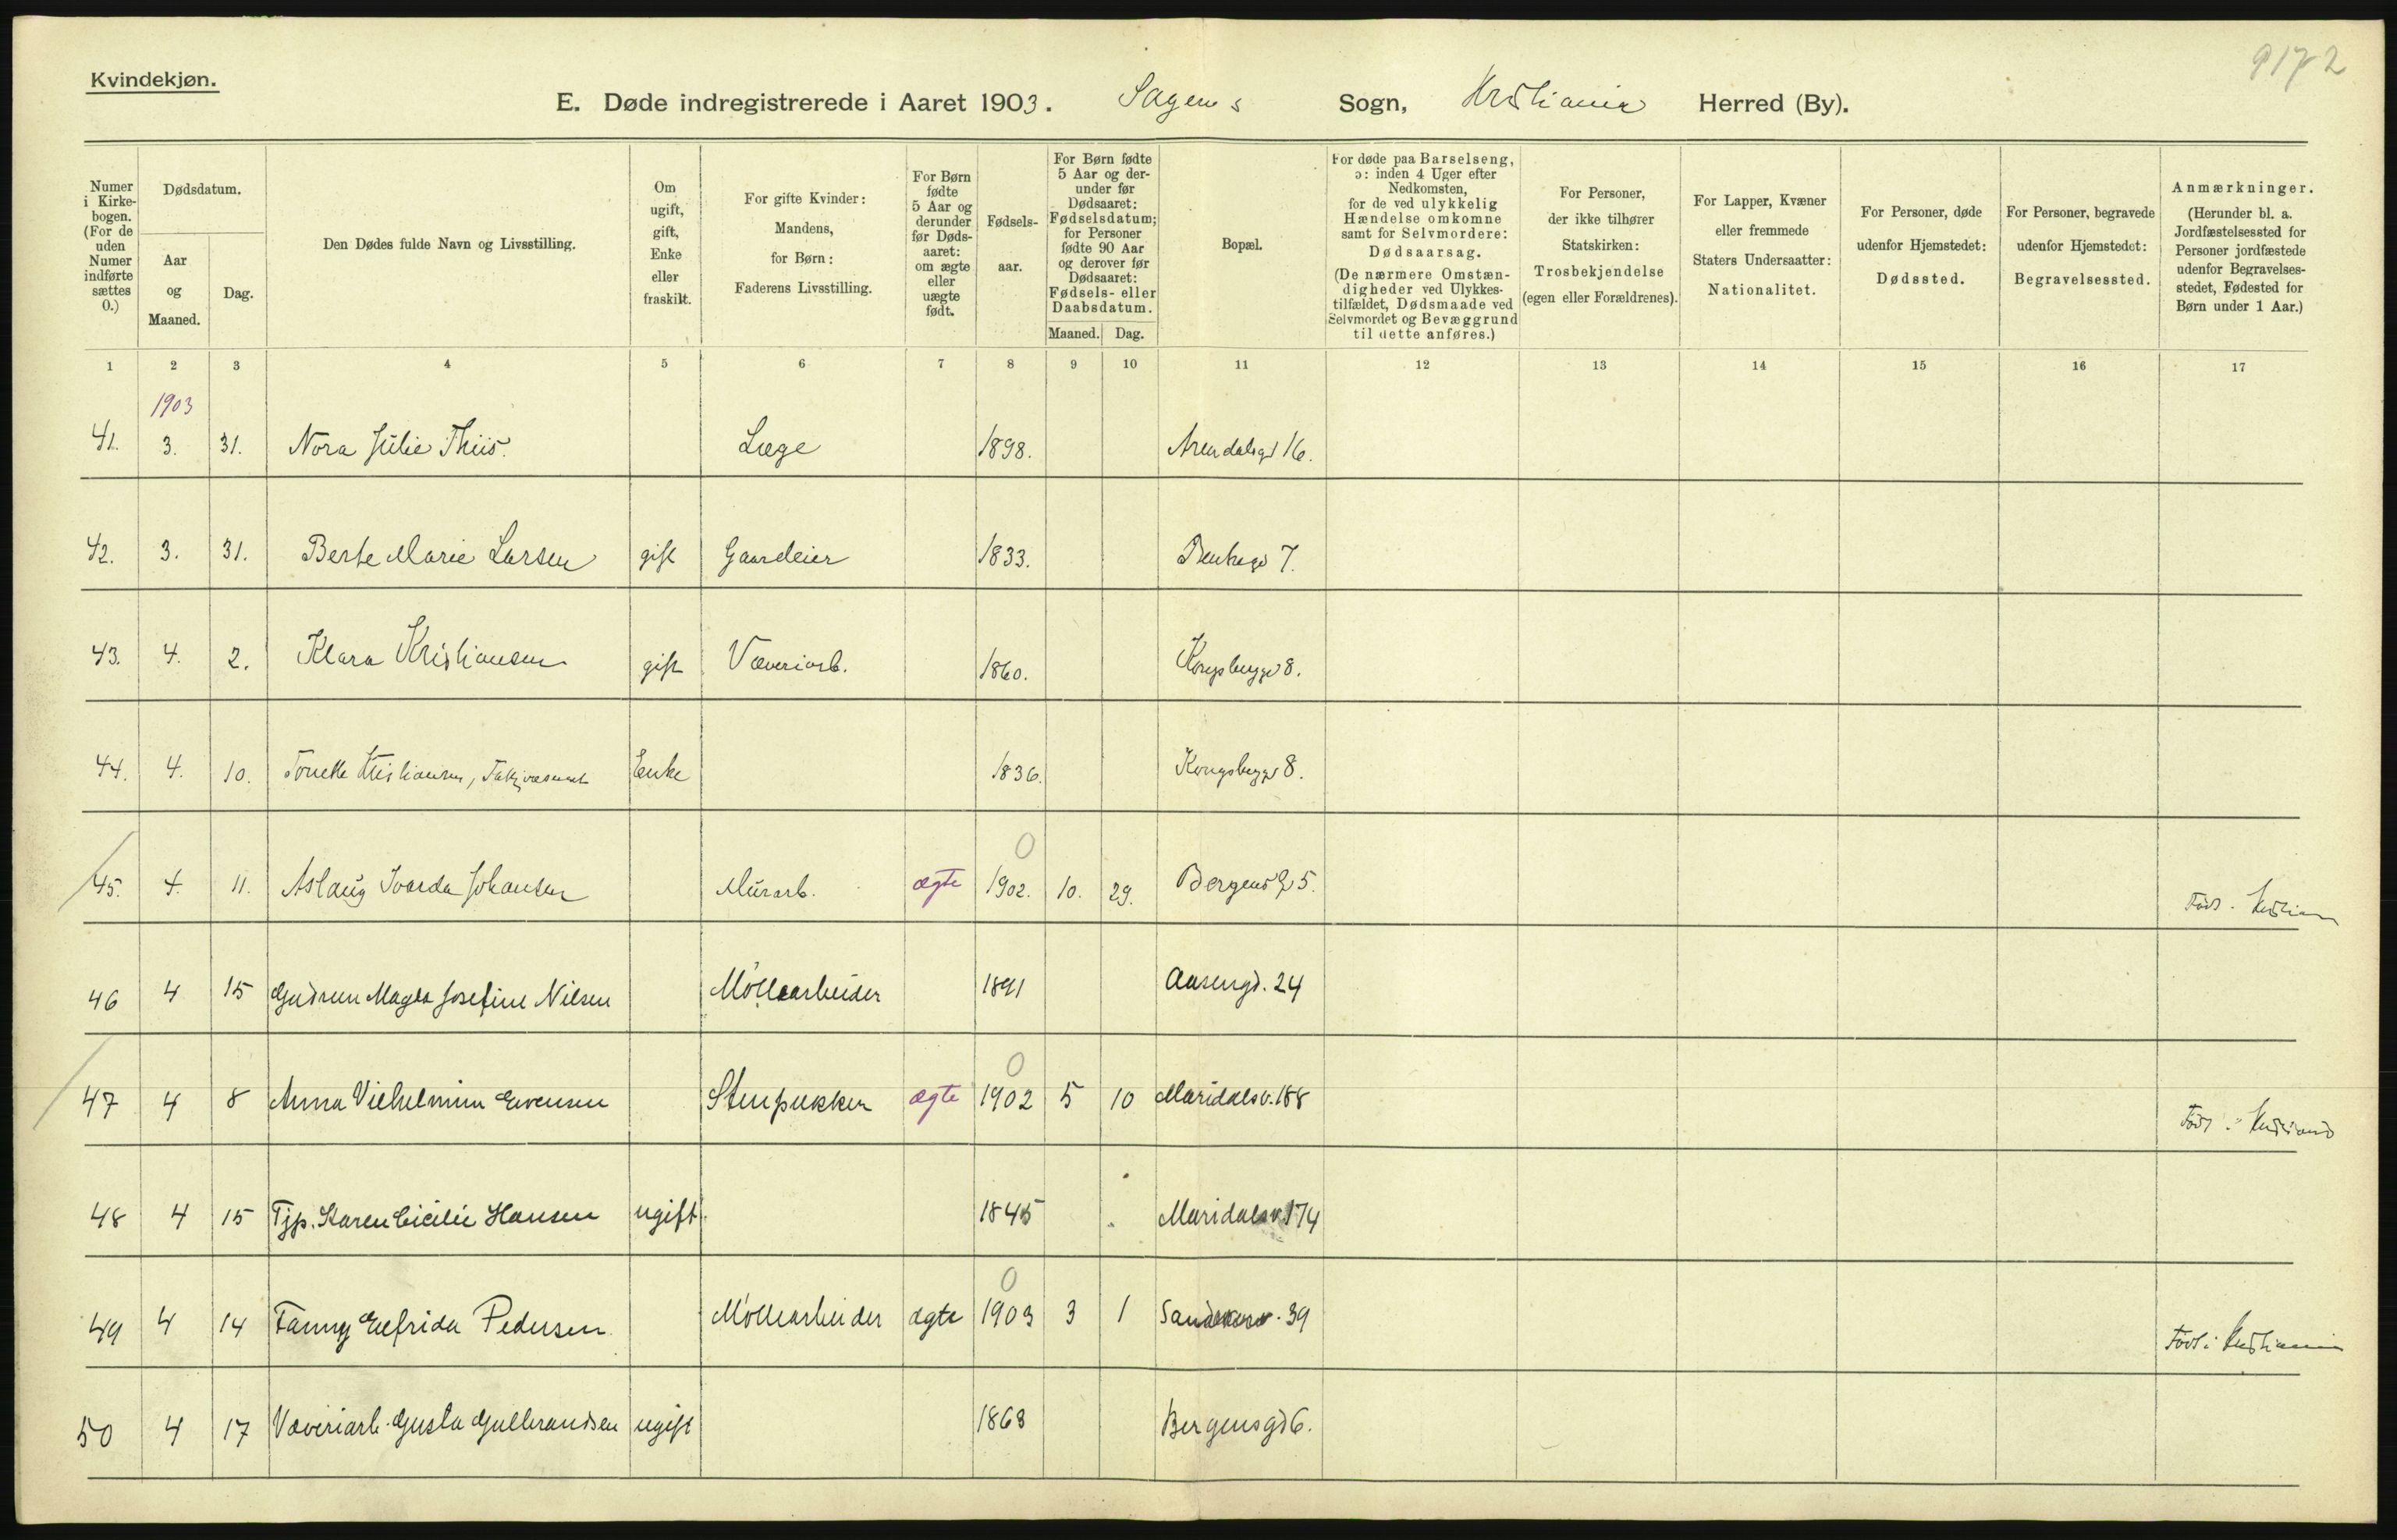 9172
Kvindekjøn.
E. Døde indregistrerede i Aaret 1903. Sagenes Sogn, Kristiania Herred (By).
Numer i Kirkebogen. (For de uden Numer indførte sættes 0.)
Dødsdatum.
Aar og Maaned.
Dag.
Den Dødes fulde Navn og Livsstilling.
Om ugift, gift, Enke eller fraskilt.
For gifte Kvinder: Mandens, for Børn: Faderens Livsstilling.
For Børn fødte 5 Aar og derunder før Dødsaaret: om ægte eller uægte født.
Fødselsaar.
For Børn fødte 5 Aar og derunder før Dødsaaret: Fødselsdatum; for Personer fødte 90 Aar og derover før Dødsaaret: Fødsels- eller Daabsdatum.
Maaned. Dag.
Bopæl.
For døde paa Barselseng, ɔ: inden 4 Uger efter Nedkomsten, for de ved ulykkelig Hændelse omkomne samt for Selvmordere: Dødsaarsag. (De nærmere Omstændigheder ved Ulykkestilfældet, Dødsmaade ved Selvmordet og Bevæggrund til dette anføres.)
For Personer, der ikke tilhører Statskirken: Trosbekjendelse (egen eller Forældrenes).
For Lapper, Kvæner eller fremmede Staters Undersaatter: Nationalitet.
For Personer, døde udenfor Hjemstedet: Dødssted.
For Personer, begravede udenfor Hjemstedet: Begravelsessted.
Anmærkninger. (Herunder bl. a. Jordfæstelsessted for Personer jordfæstede udenfor Begravelsesstedet, Fødested for Børn under 1 Aar.)
1 2 3 4 5 6 7 8 9 10 11 12 13 14 15 16 17
1903
41. 3. 31. Nora Julie Thiis. Læge 1898. Arendalsgd 16.
42. 3. 31. Berte Marie Larsen gift Gaardeier 1833. 7.
43. 4. 2. Klara Kristiansen gift Væveriarb. 1860. Kongsberggd 8.
44. 4. 10. Tonette Kristiansen, Enke 1836. Kongsberggd 8.
0
45. 4. 11. Aslaug Ivarda Johansen Murarb. ægte 1902. 10. 29. Bergensgd 5. Født i Kristiania
46 4 15 Gudrun Magda Josefine Nilsen Møllearbeider 1891 Aasengd. 24
0
47 4 8 Anna Vilhelmine Evensen Stenpukker ægte 1902 5 10 Maridalsv. 188 Født i Kristiania
48 4 15 Tjp. Karen Cicilie Hansen ugift 1845 Maridalsv. 174
0
49 4 14 Fanny Elfrida Pedersen Møllearbeider ægte 1903 3 1 39 Født i Kristiania
50 4 17 Væveriarb. Gusta Gulbrandsen ugift 1868 Bergensgd 6.